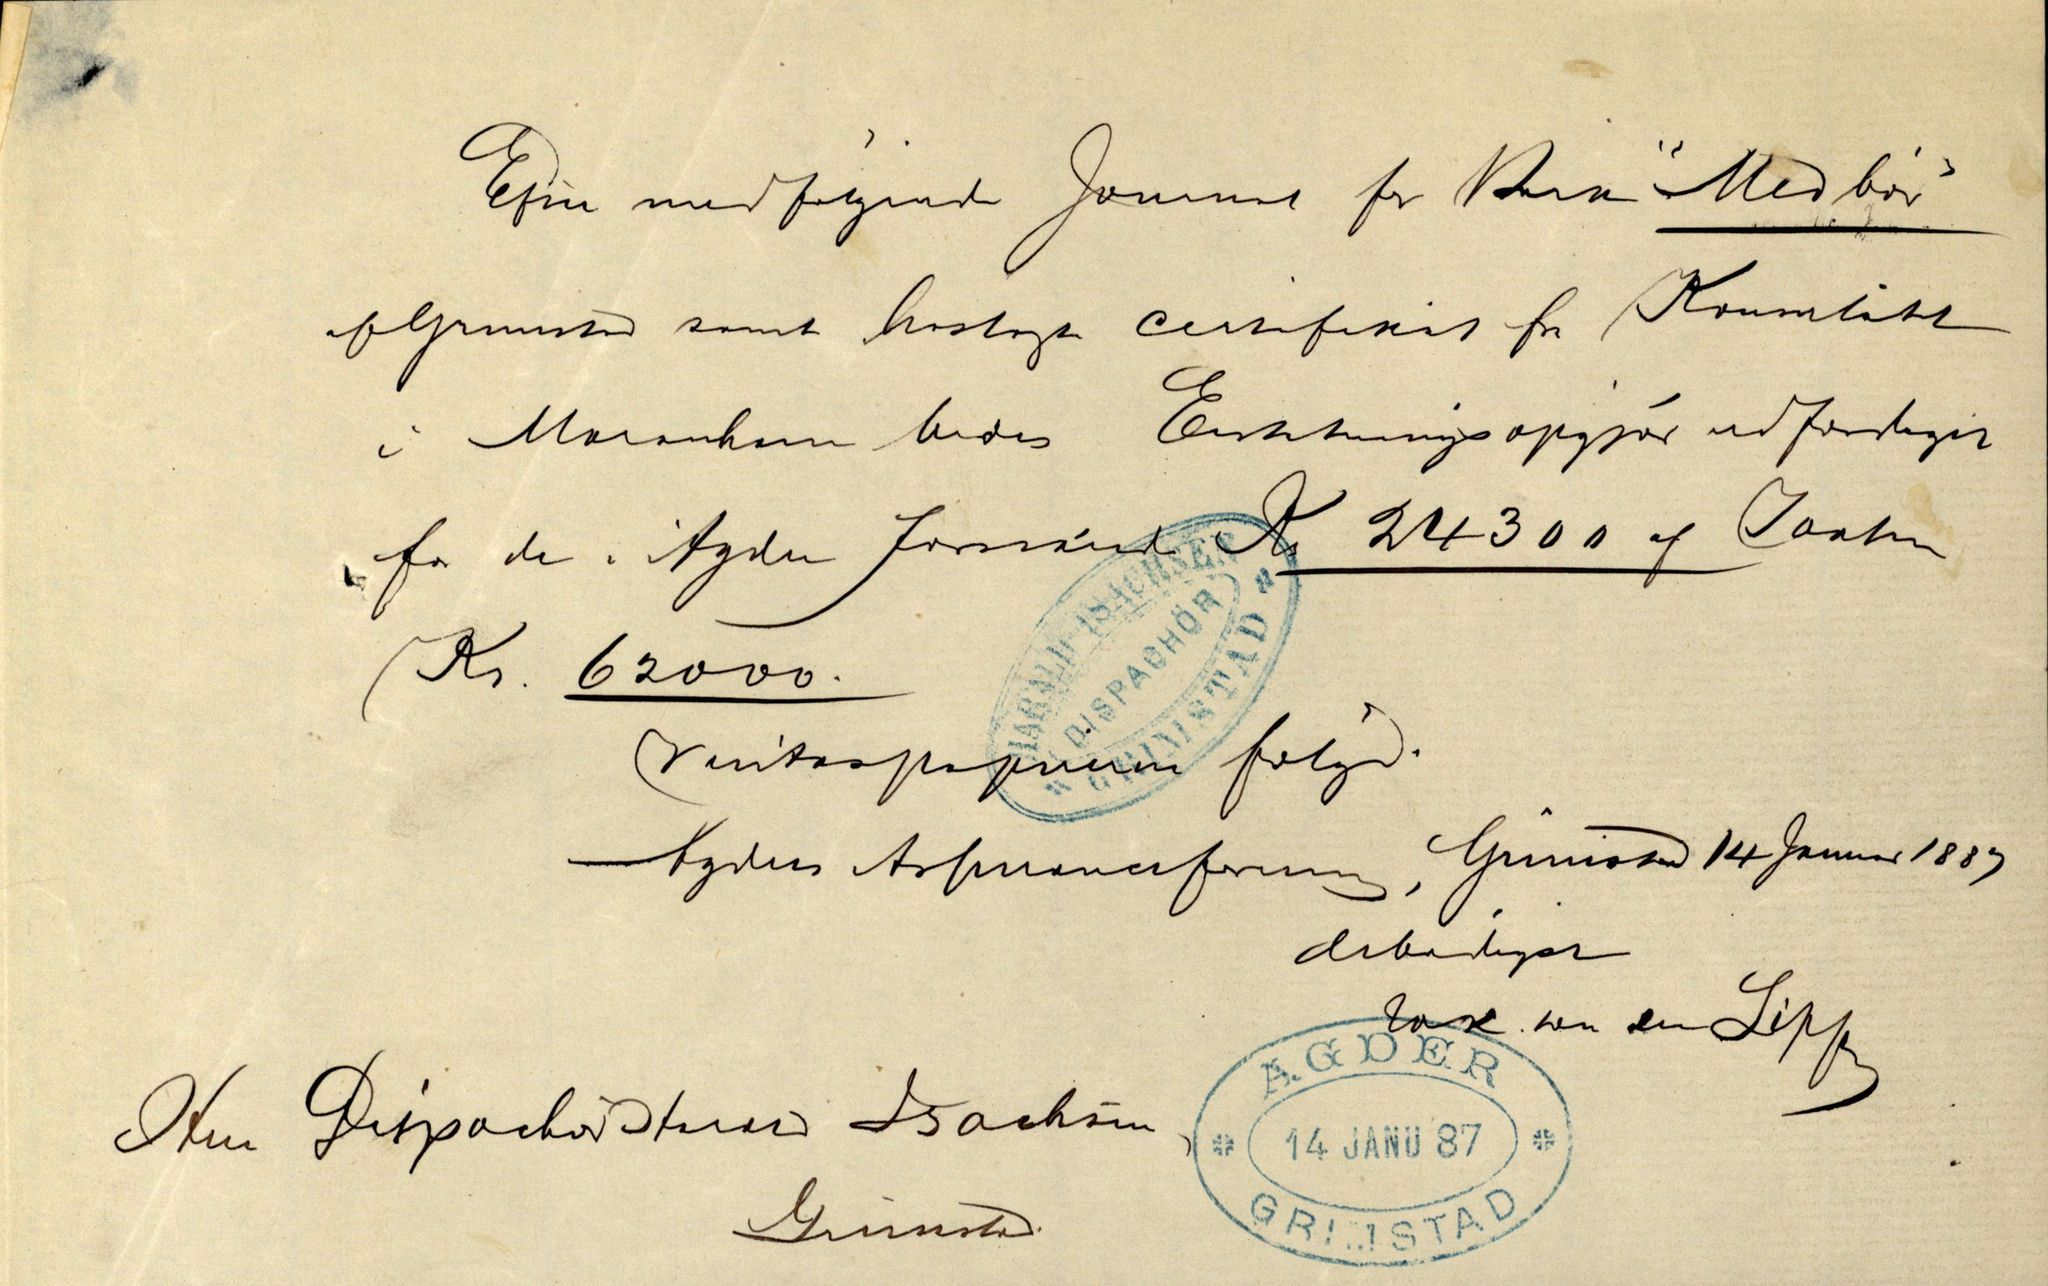 Efter medfølgende Journal for Bark "Medbør"
af Grimstad samt hoslagte certifikat fra Konsulatet
i Maranham bedes Erstatningsopgjør udfærdiget
for de i Agder forsikrede Kr 24300 af Taxten
Kr. 62000.
Veritaspapirerne følger.
Agders Assuranceforening, Grimstad 14 Januar 1887
ærbødigst
von der Lippe
Herr Dispachør Harald Isachsen,
Grimstad.
HARALD ISACHSEN
DISPACHÖR
GRIMSTAD
AGDER
14 JANU 87
GRIMSTAD